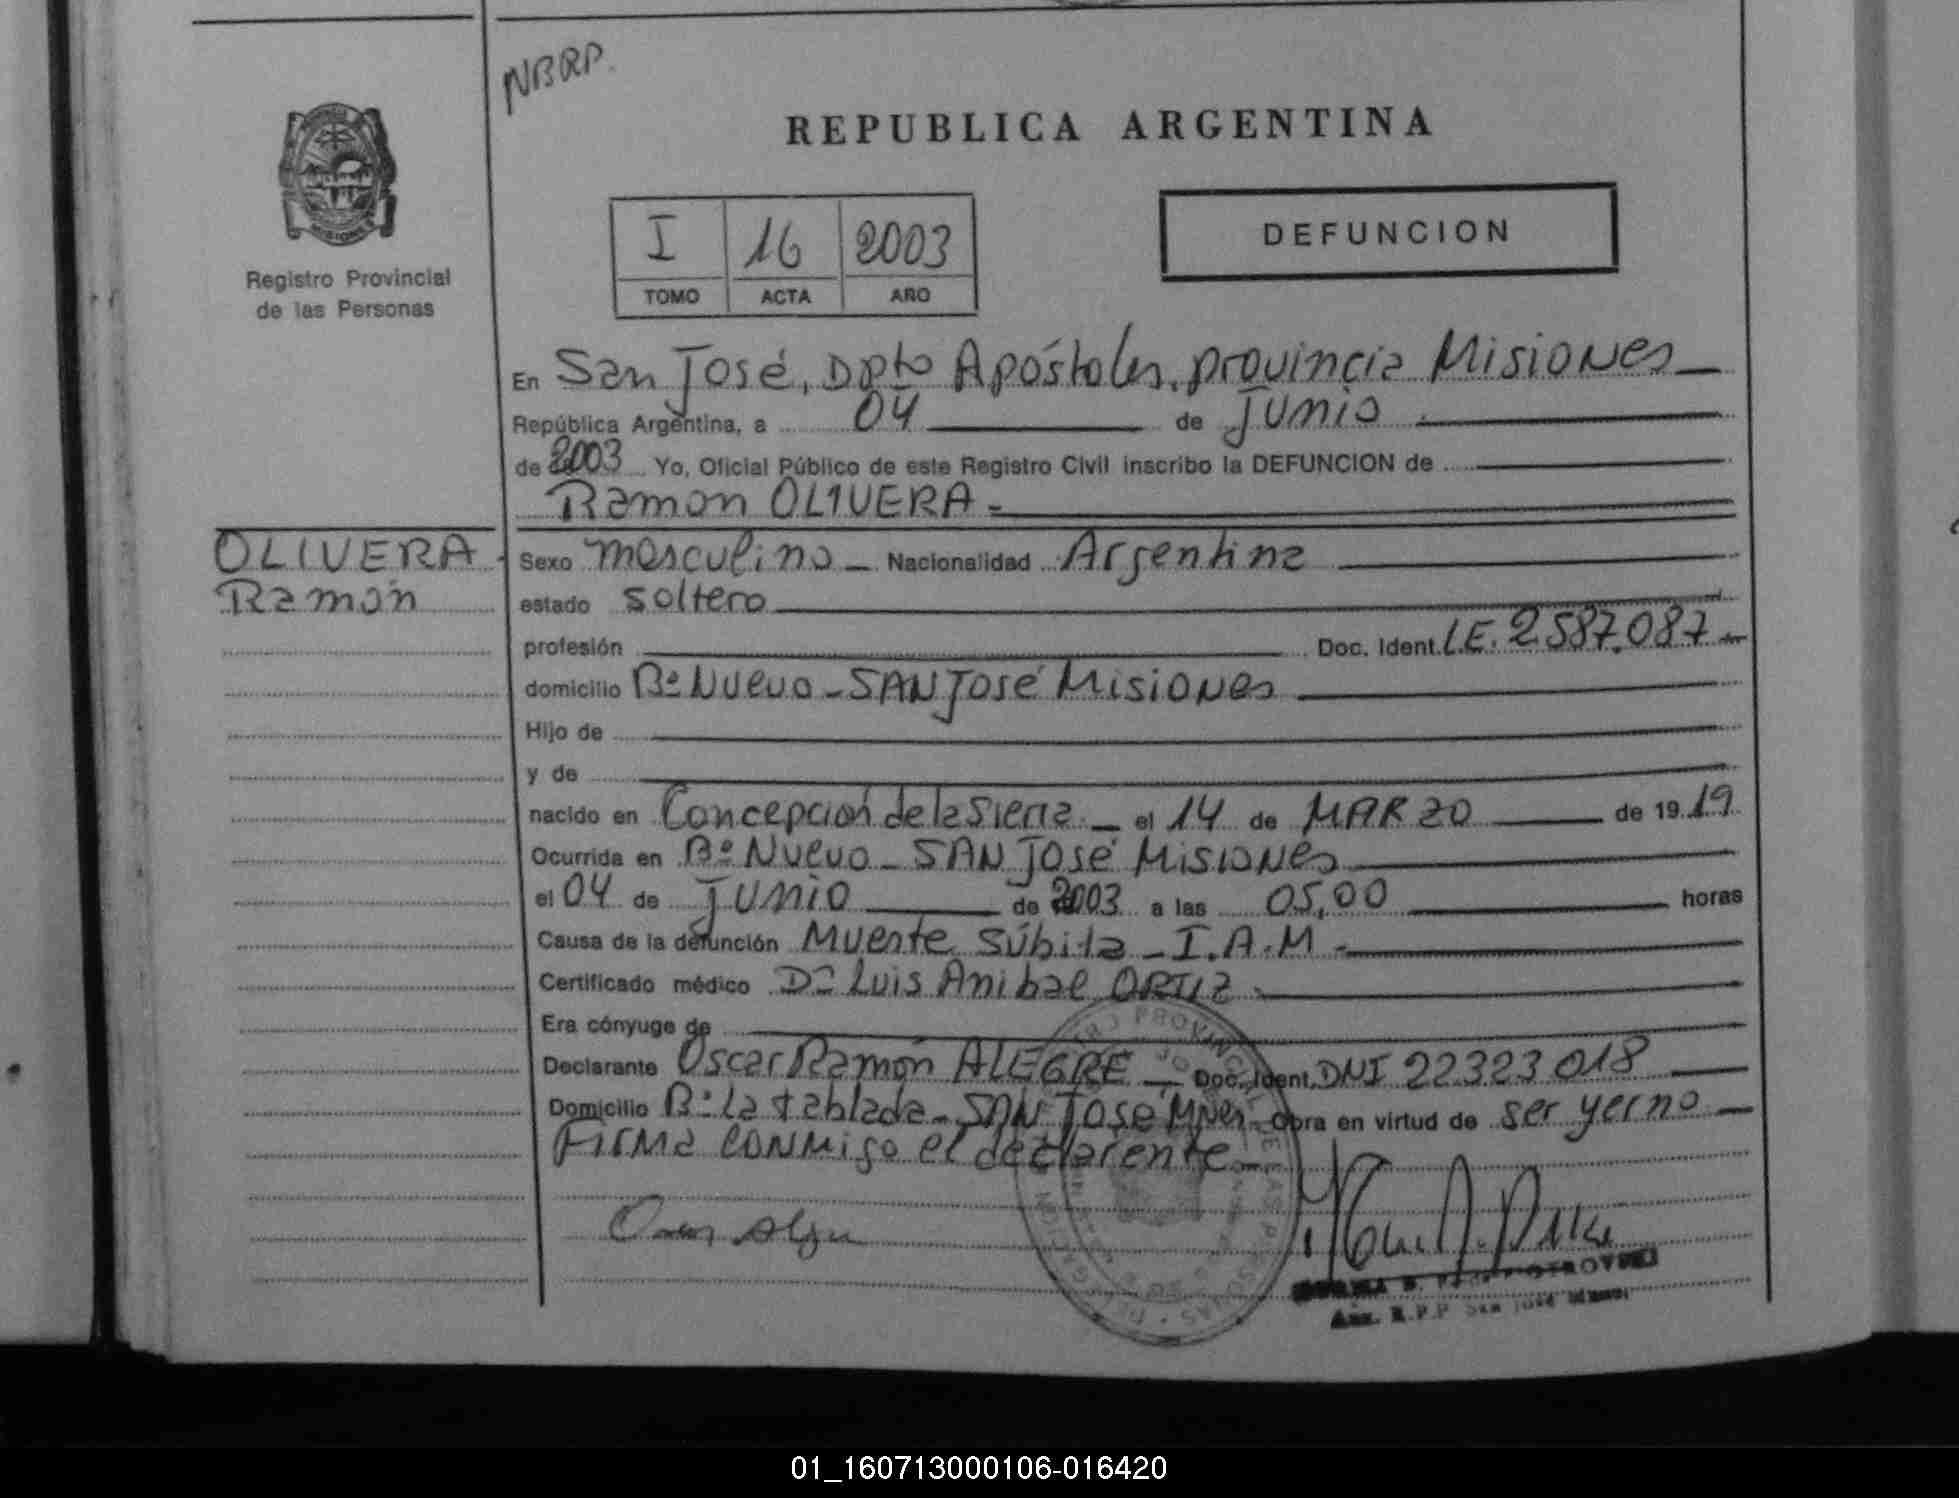 NBRP.
REPUBLICA ARGENTINA
MISIONES
Registro Provincial
de las Personas
I 16 2003
TOMO ACTA AÑO
DEFUNCION
En San José, Dpto Apóstoles, provincia Misiones
República Argentina, a 04 de Junio
de 2003 Yo, Oficial Público de este Registro Civil inscribo la DEFUNCION de
Ramon OLIVERA
OLIVERA
Ramón
Sexo masculino Nacionalidad Argentina
estado soltero
profesión Doc. Ident. L.E. 2.587.087
domicilio Bº Nuevo - SAN José Misiones
Hijo de
y de
nacido en Concepción de la Sierra el 14 de MARZO de 1919
Ocurrida en Bº Nuevo - SAN José Misiones
el 04 de Junio de 2003 a las 05,00 horas
Causa de la defunción Muerte Súbita - I.A.M.
Certificado médico Dr Luis Anibal ORTIZ
Era cónyuge de
Declarante Oscar Ramón ALEGRE Doc. Ident. DNI 22323018
Domicilio Bº La tablada - SAN José Mnes. Obra en virtud de ser yerno
Firma conmigo el declarante
01_160713000106-016420